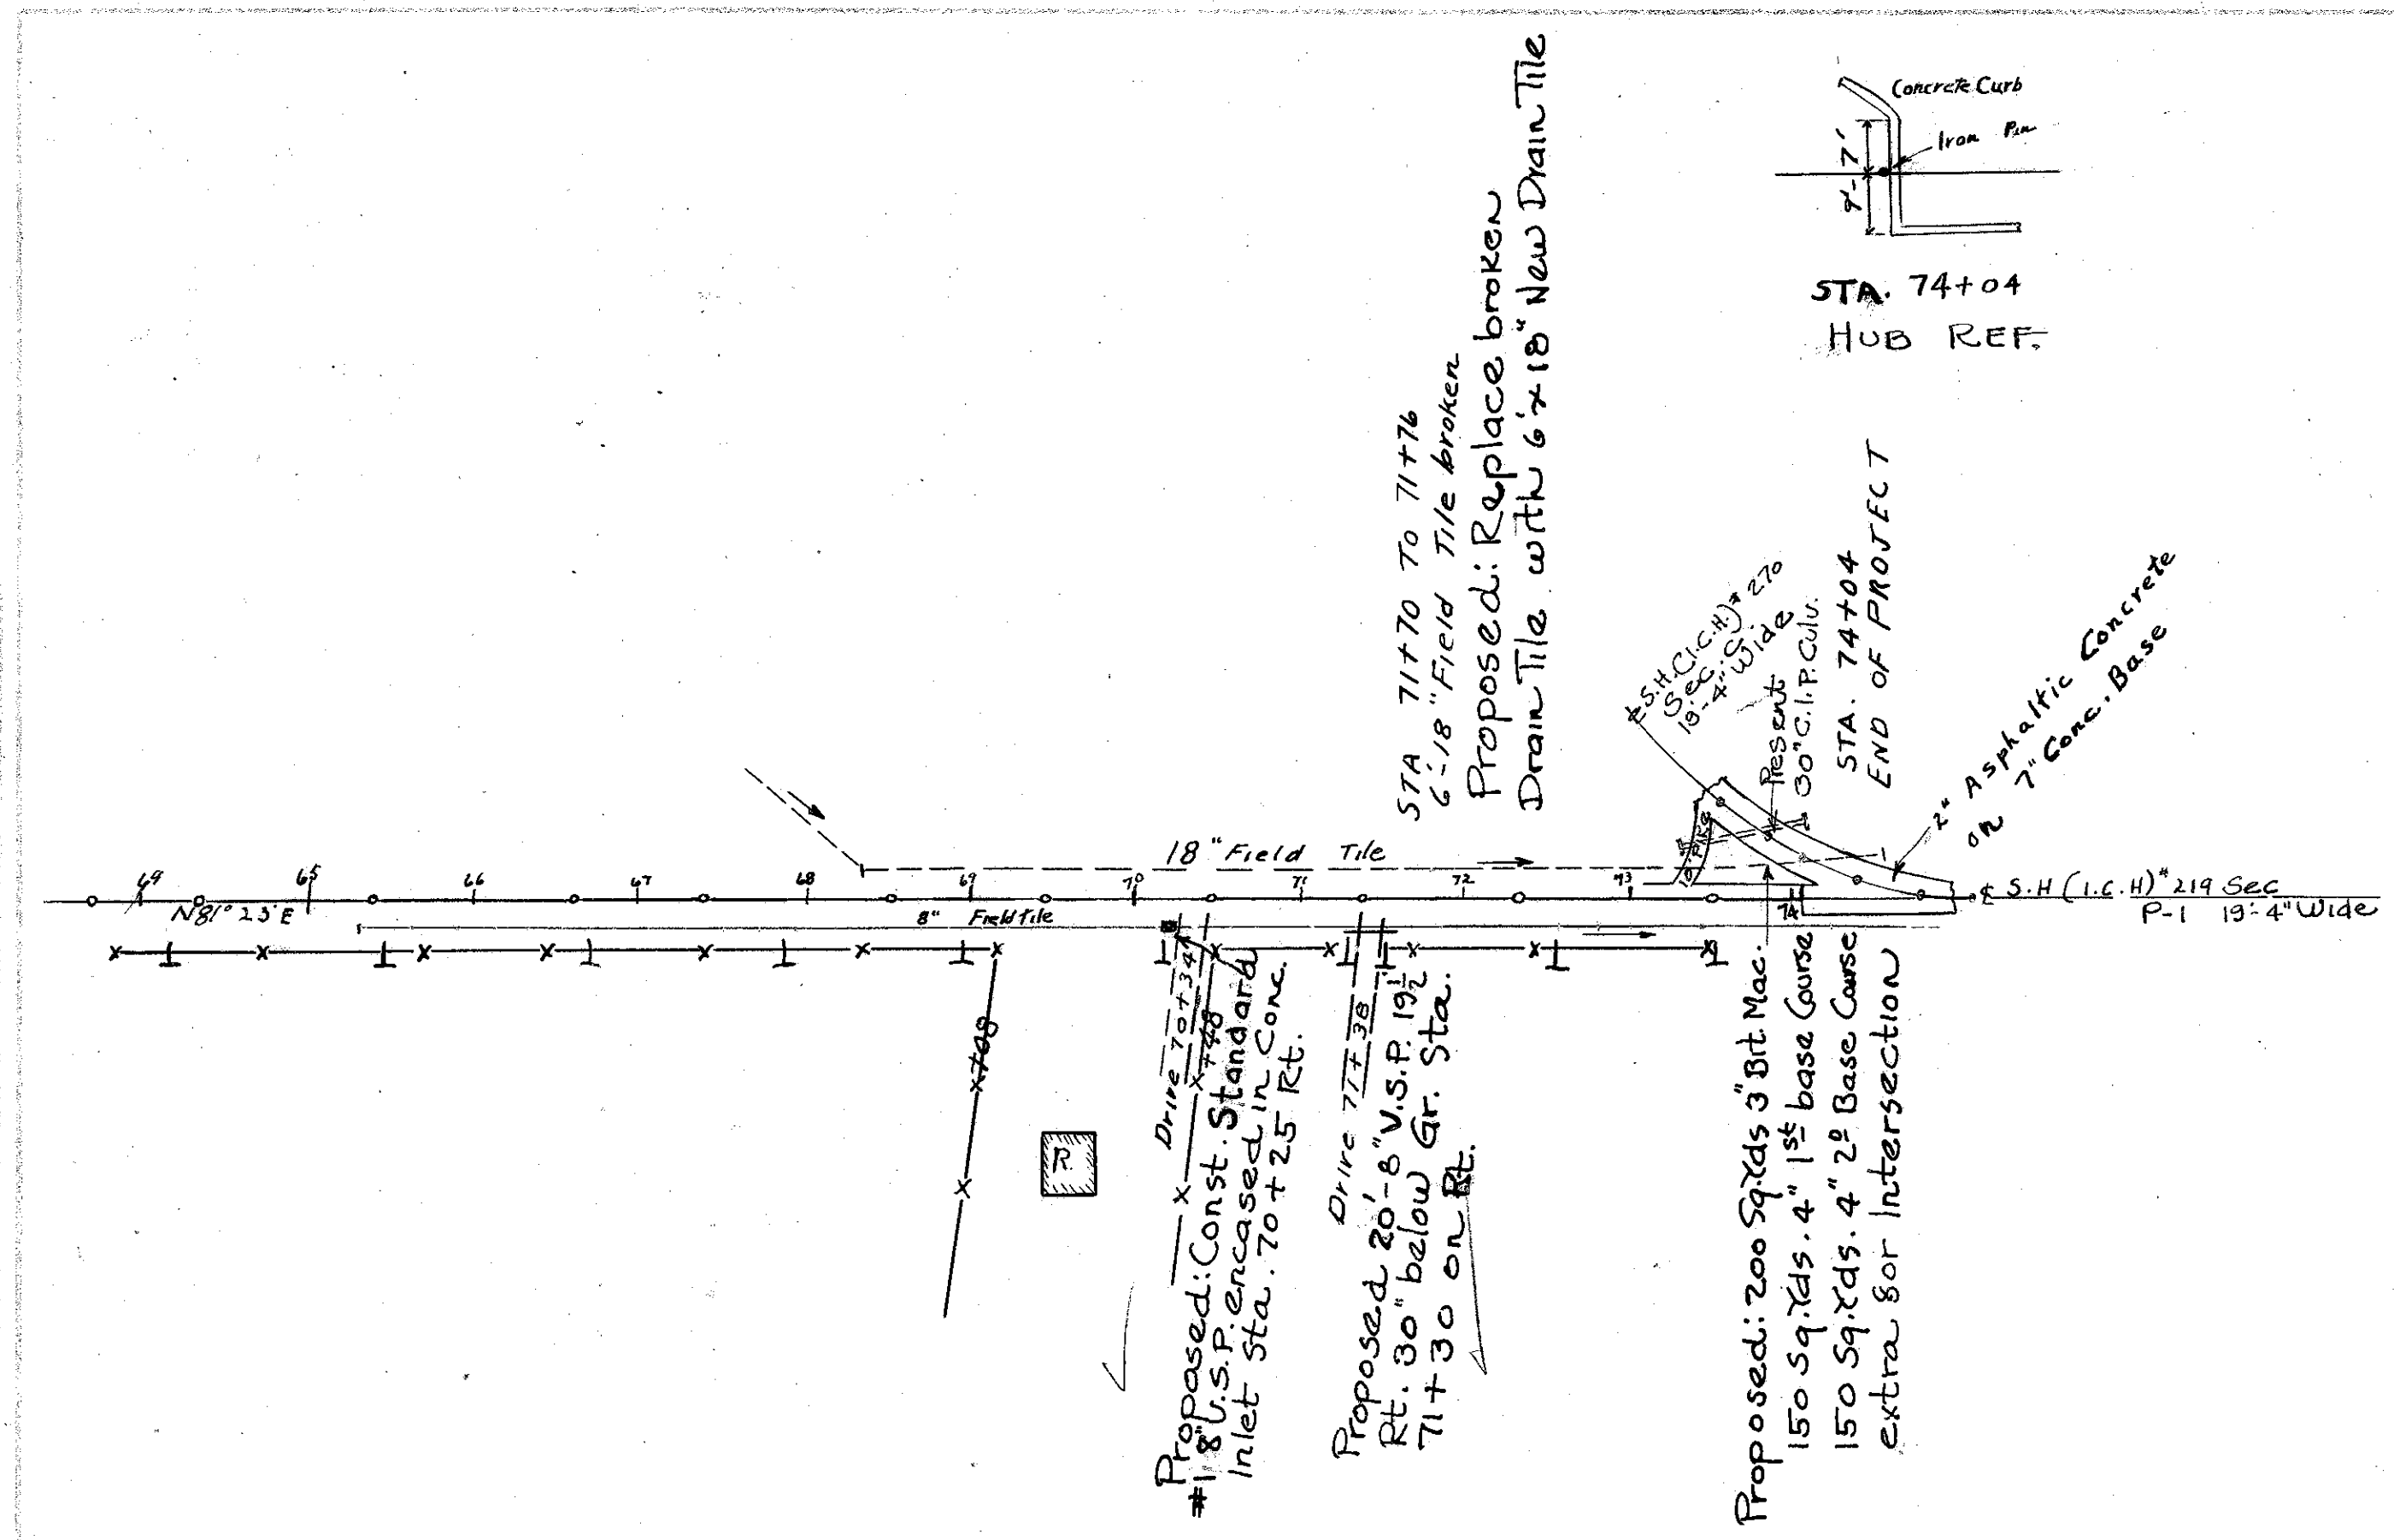 Concrete Curb
Iron Pin
7'
9'
STA. 74+04
HUB REF.
STA 71+70 TO 71+76
6'-18" Field Tile broken
Proposed: Replace broken
Drain Tile with 6'x18" New Drain Tile
℄ S.H.(I.C.H.)#270
Sec. G.
19'-4" Wide
Present
30" C.I.P. Culv.
STA. 74+04
END OF PROJECT
2" Asphaltic Concrete
on 7" Conc. Base
18" Field Tile
69 65 66 67 68 69 70 71 72 73 74
N81° 25' E
8" Field tile
℄ S.H (I.C.H)#219 Sec
P-1 19'-4" Wide
+08
R
Drive 70+34
+48
Proposed: Const. Standard
#1 8" V.S.P. encased in Conc.
Inlet Sta. 70+25 Rt.
Drive 71+38
Proposed 20'-8" V.S.P. 19½'
Rt. 30" below Gr. Sta.
71+30 on Rt.
Proposed: 200 Sq.Yds 3" Bit. Mac.
150 Sq.Yds. 4" 1st base Course
150 Sq.Yds. 4" 2º Base Course
extra for Intersection